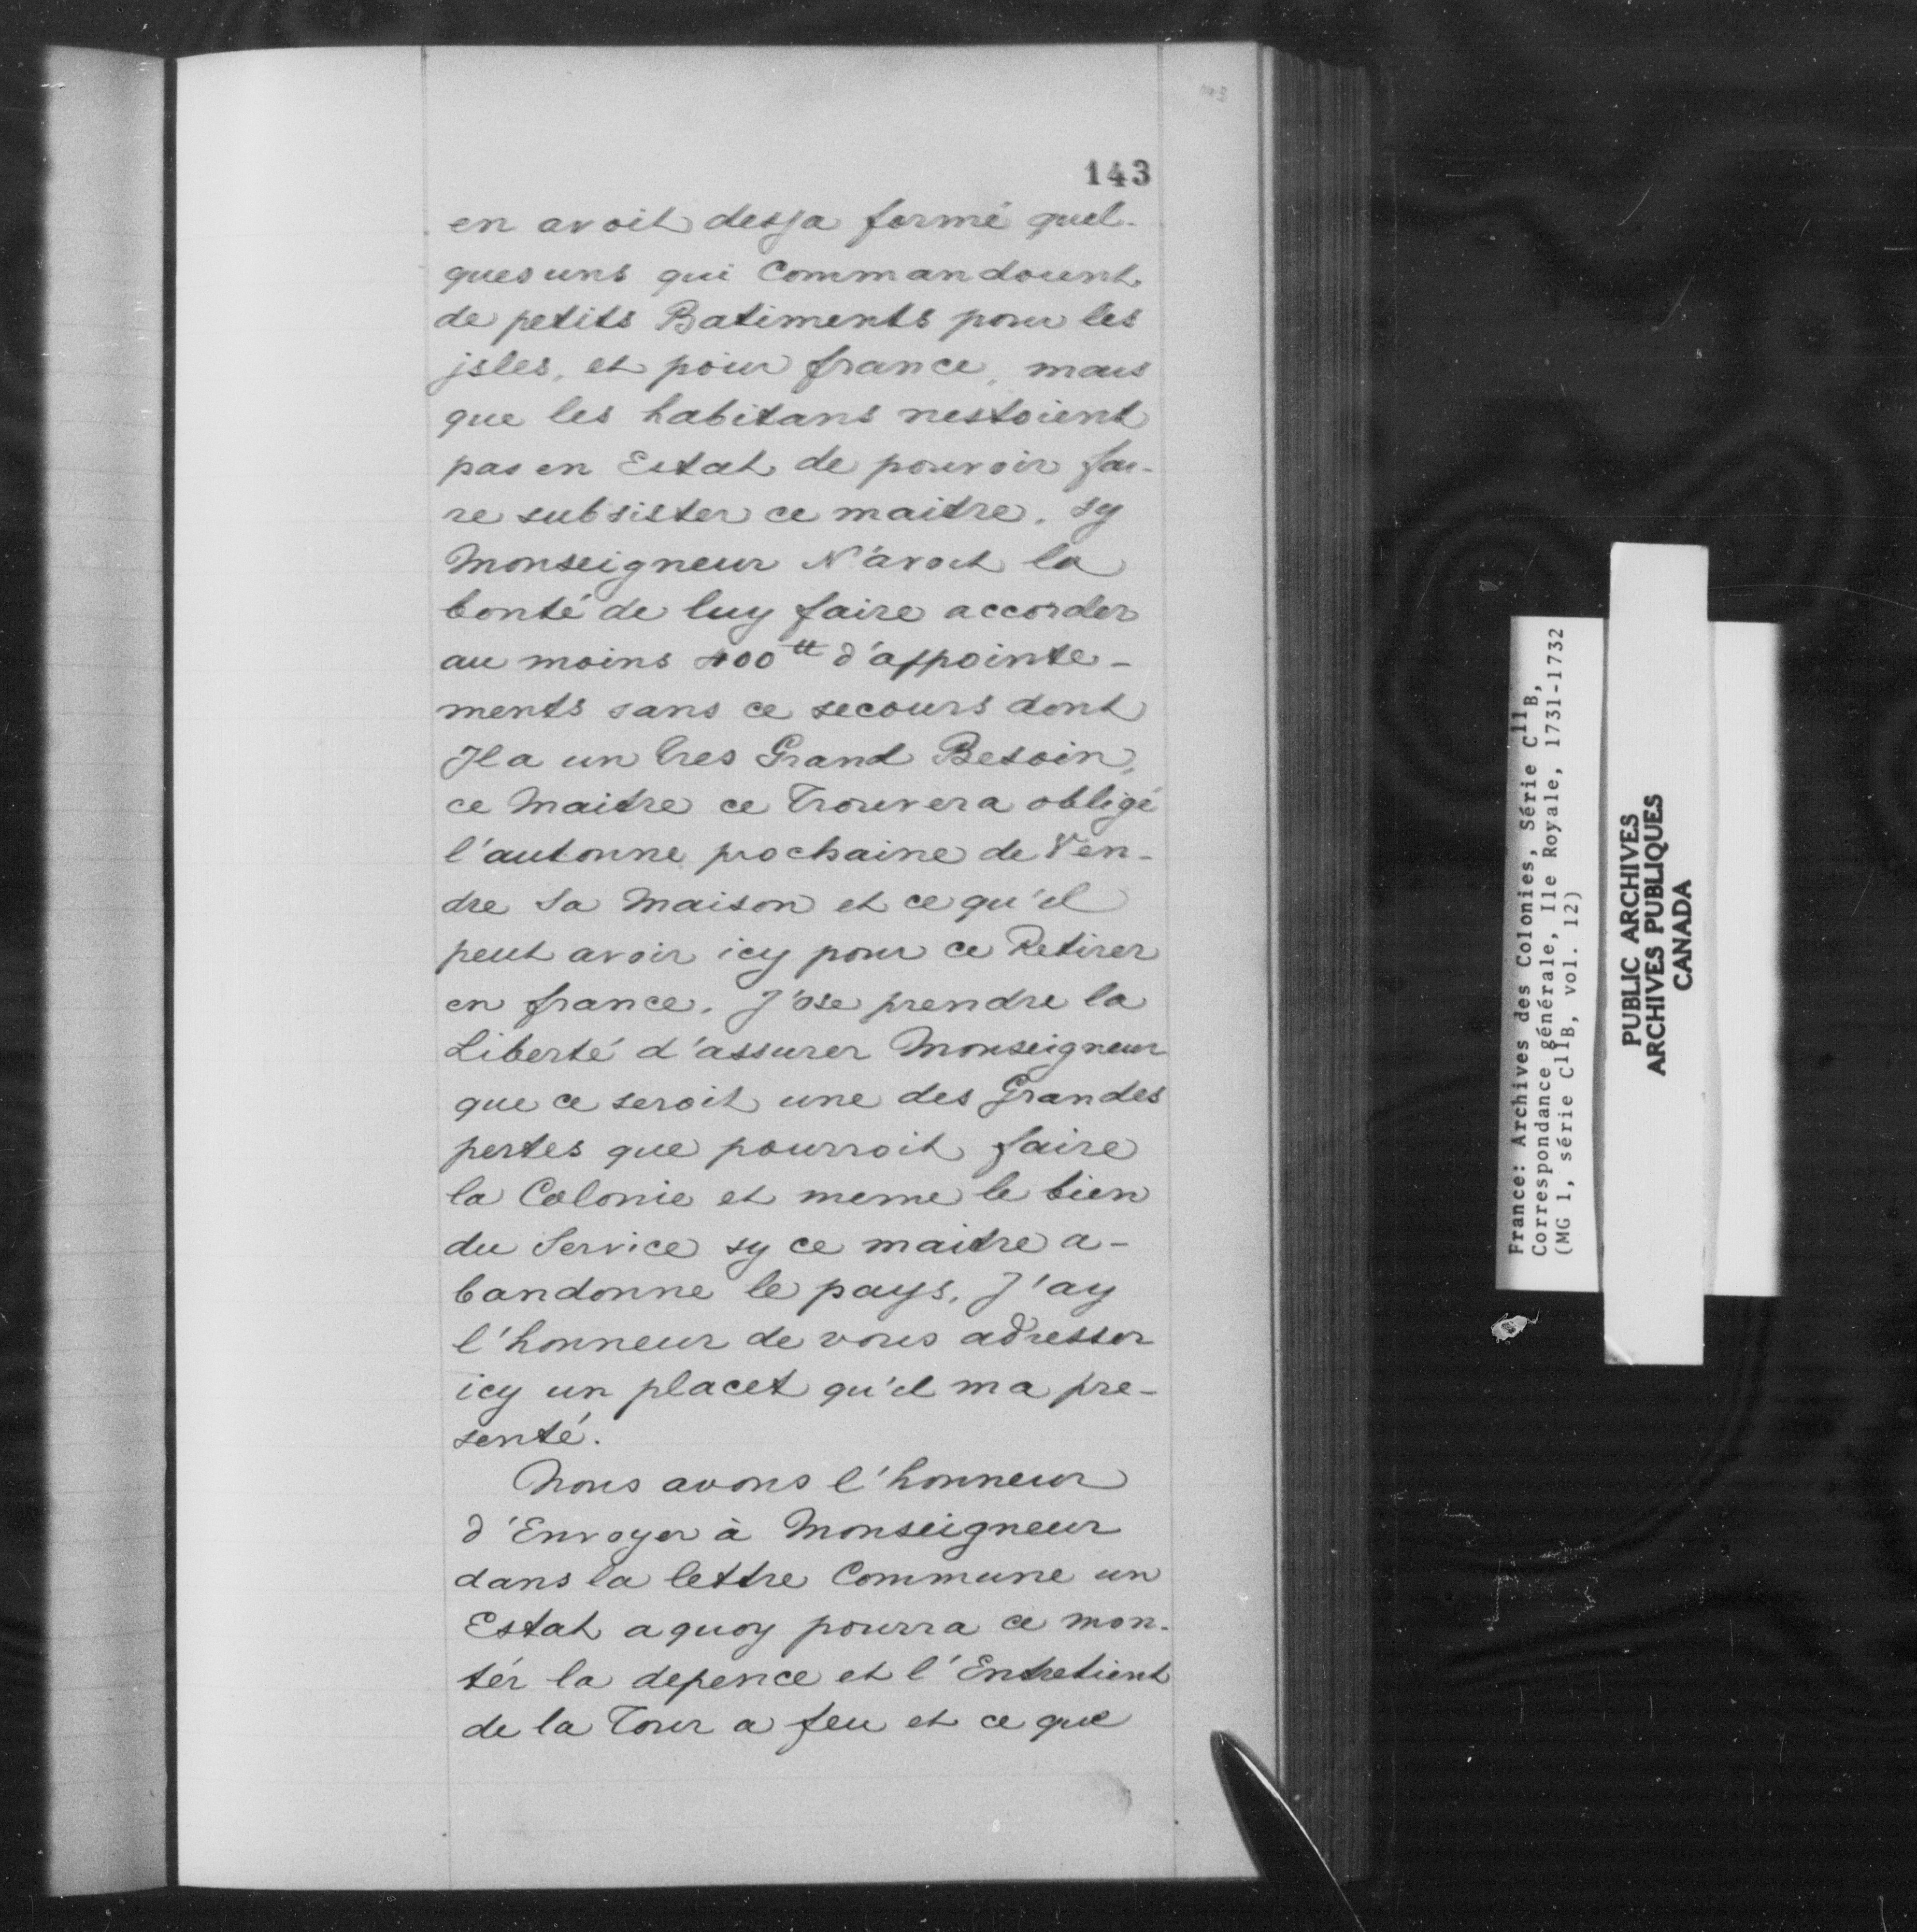 143
en avoit desja formé quel-
ques uns qui Commandoient
de petits Batiments pour les
jsles, et pour france, mais
que les habitans nestoient
pas en Estat de pouvoir fai-
re subsister ce maitre. sy
Monseigneur N'avoit la
bonté de luy faire accorder
au moins 400tt d'appointe-
ments sans ce secours dont
Jl a un tres Grand Besoin,
ce Maitre ce Trouvera obligé
l'autonne prochaine de Ven-
dre Sa Maison et ce qu'il
peut avoir icy pour ce Retirer
en france. J'ose prendre la
Liberté d'assurer Monseigneur
que ce seroit une des Grandes
pertes que pourroit faire
la Colonie et meme le bien
du Service sy ce maitre a-
bandonne le pays. J'ay
l'honneur de vous adresser
icy un placet qu'il ma pre-
senté.
Nous avons l'honneur
d'Envoyer à Monseigneur
dans la lettre Commune un
Estat a quoy pourra ce mon-
tér la depence et l'Entretient
de la Tour a feu et ce que
France: Archives des Colonies, Série C11B,
Correspondance générale, Ile Royale, 1731-1732
(MG 1, série C11B, vol. 12)
PUBLIC ARCHIVES
ARCHIVES PUBLIQUES
CANADA